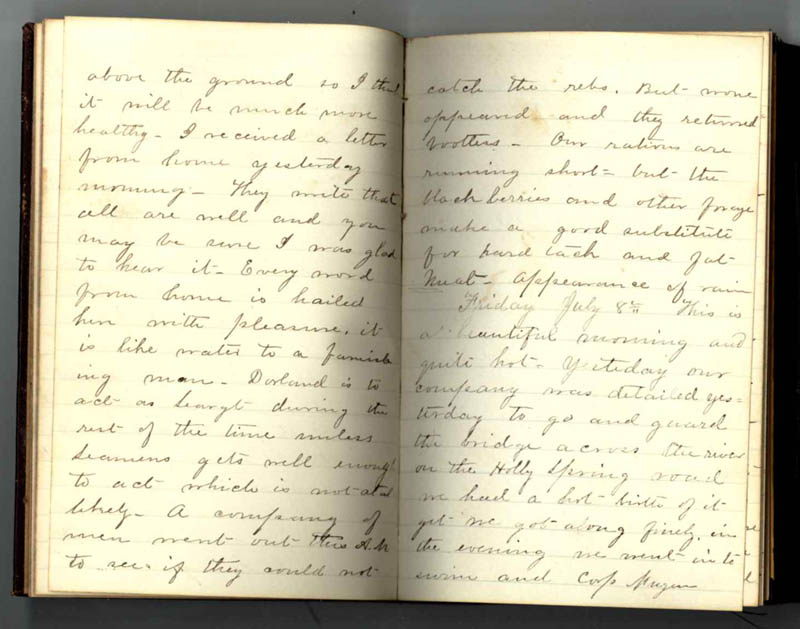 above the ground so I think
it will be much more
healthy - I received a letter
from home yesterday
morning - They write that
all are well and you
may be sure I was glad
to hear it - Every word
from home is hailed
here with pleasure, it
is like water to a famish
ing man - Dorland is to
act as Seargt during the
rest of the time unless
Seamens gets well enough
to act which is not at all
likely - A company of
men went out this A.M
to see if they could not
catch the rebs. But none
appeared and they returned
bootless - Our rations are
running short = but the
black berries and other forage
make a good substitute
for hard tack and fat
Meat - appearance of rain
Friday July 8th This is
a beautiful morning and
quite hot - Yesterday our
company was detailed yes=
terday to go and guard
the bridge across the river
on the Holly Spring road
we had a hot time of it
yet we got along finely, in
the evening we went in to
swim and Corp